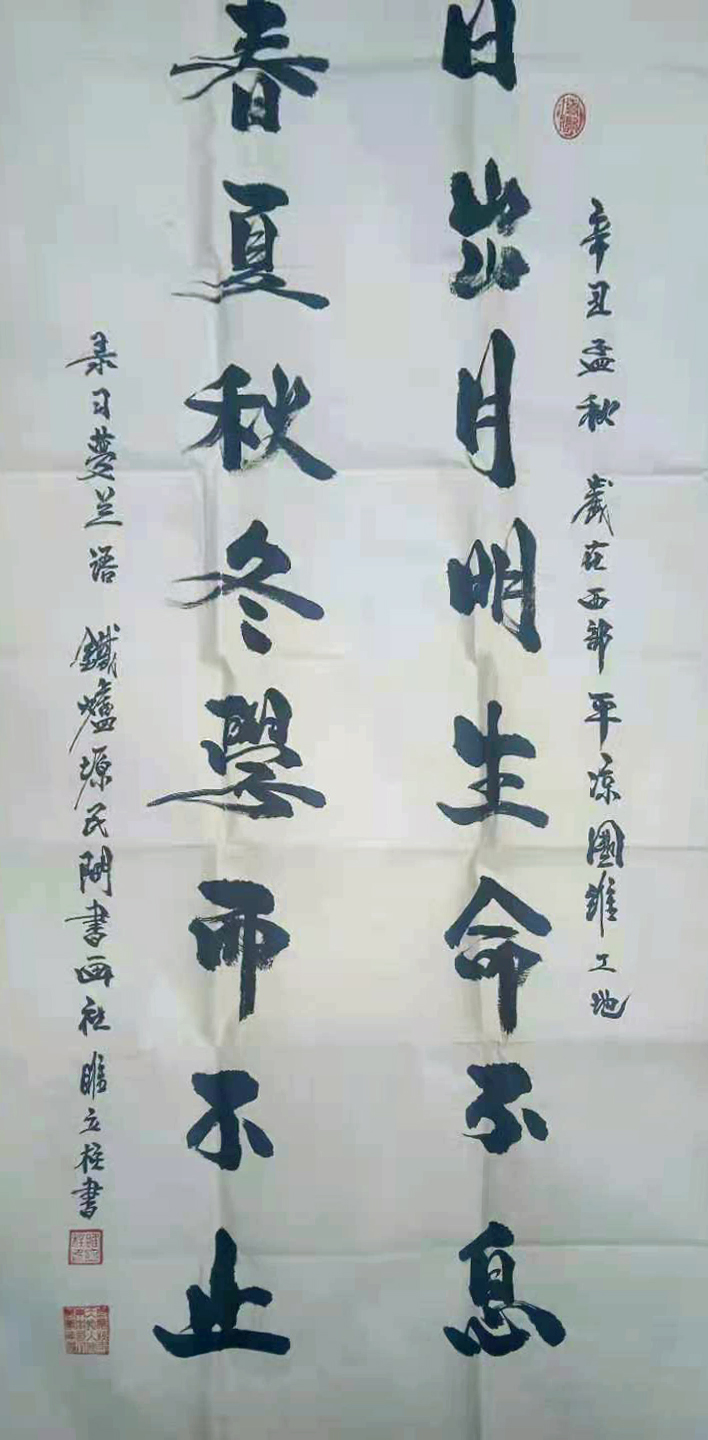 辛丑孟秋 歲在西部平凉國維工地
日出月明生命不息
春夏秋冬學而不止
录习兰语 鐵爐塬民間書画社 睢立柱書